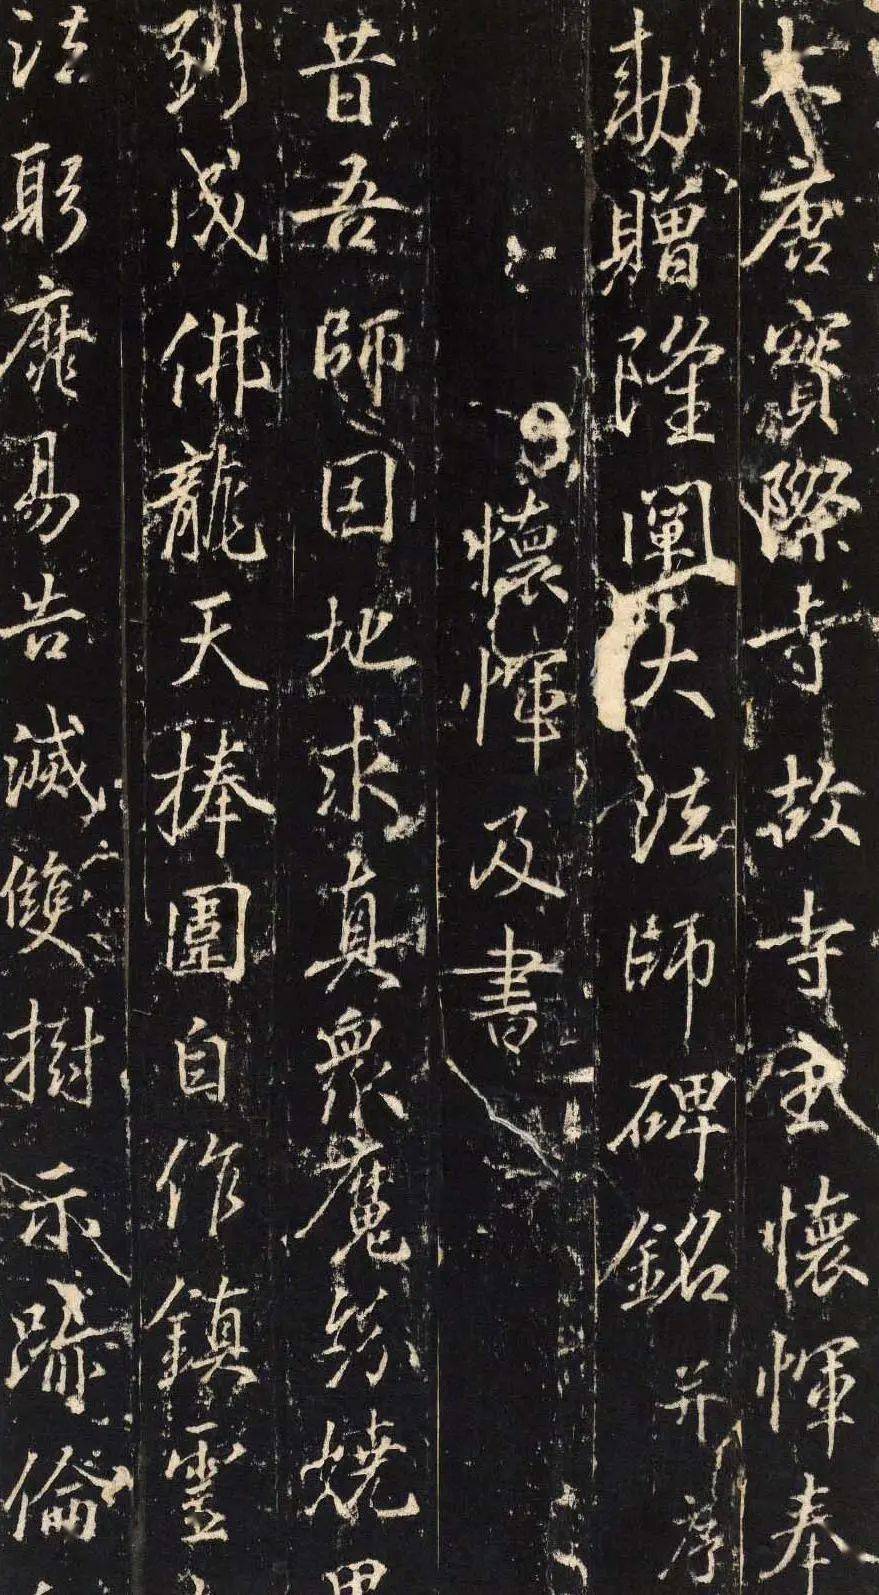 大唐實際寺故寺主懷惲奉
勅贈隆闡大法師碑銘并序
懷惲及書
昔吾師因地求真衆魔紛嬈
到成佛龍天捧圍自作鎮靈
法躬靡易告滅雙樹示跡倫